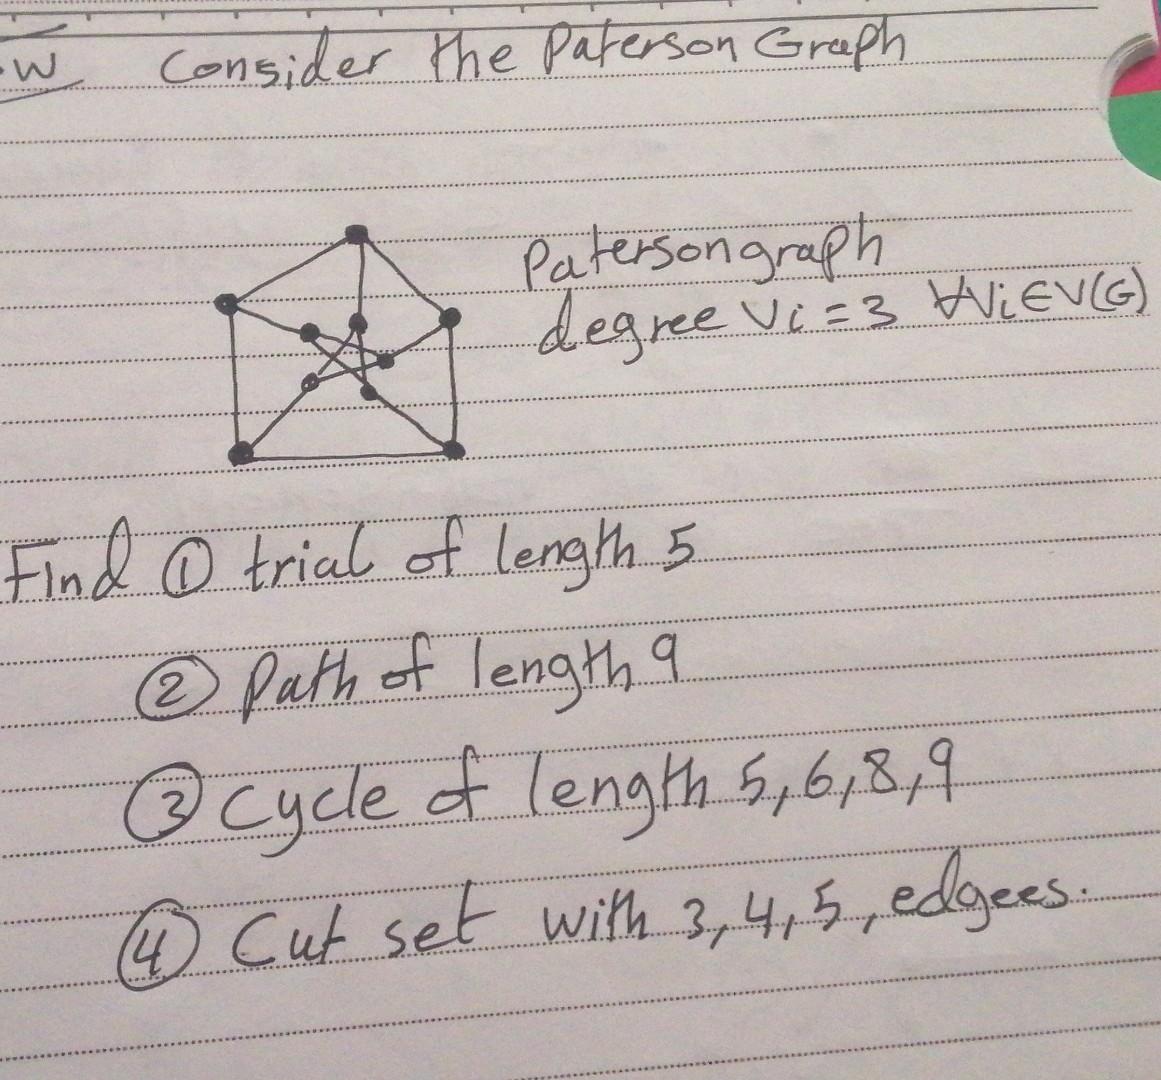 w Consider the Paterson Graph
Paterson graph
degree Vi = 3 ∀Vi∈V(G)
Find ① trial of length 5
② Path of length 9
③ Cycle of length 5,6,8,9
④ Cut set with 3,4,5, edgees.